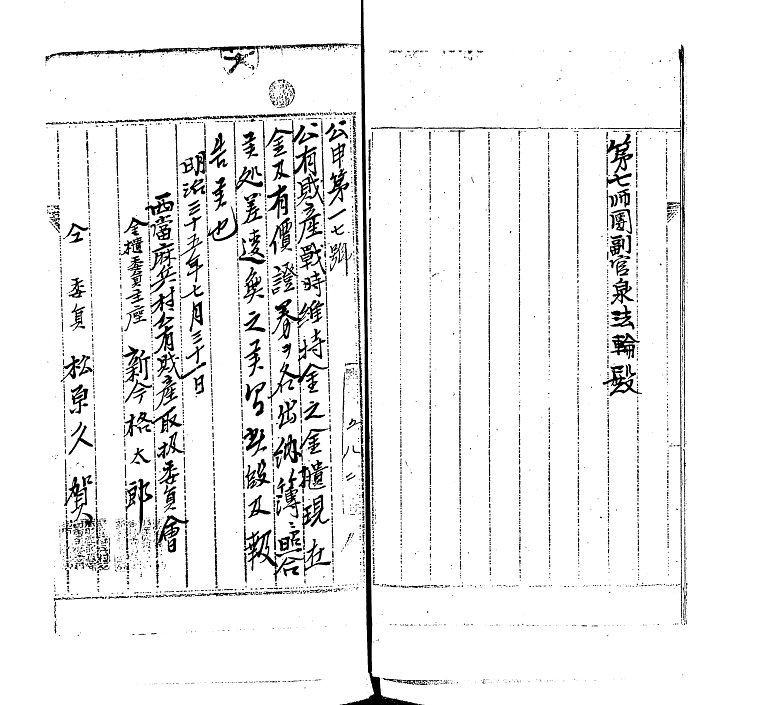 第七師團副官泉法輪殿
公申第一七號
公有財産戰時維持金之金櫃現在
金及有價證券ヲ各出納簿ニ照合
候処差違無之候間此段及報
告候也
明治三十五年七月三十一日
西當麻兵村公有財産取扱委員會
金櫃委員主座 新今格太郎
仝 委員 松原久賀